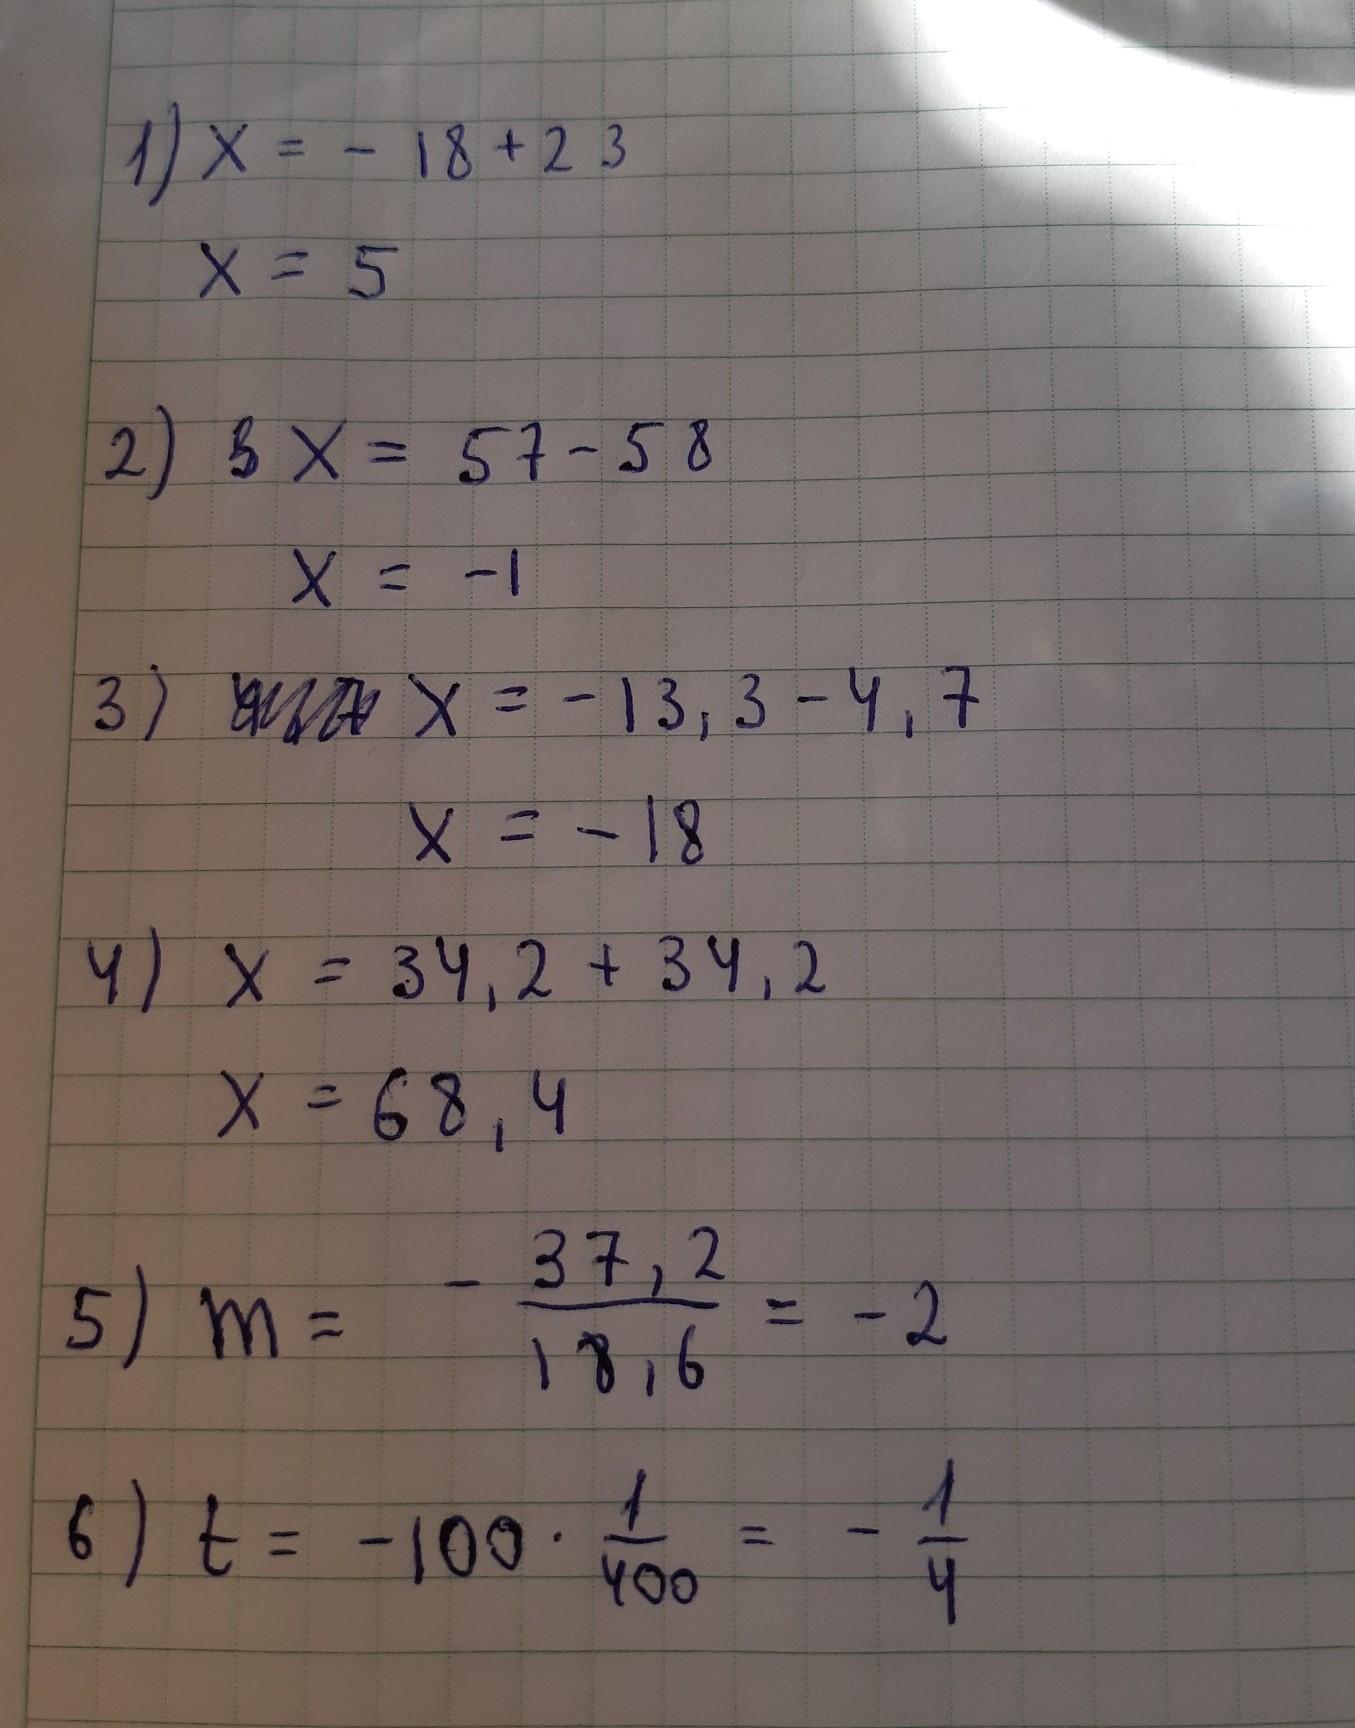 1) x = - 18 + 23
x = 5
2) x = 57 - 58
x = -1
3) x = - 13,3 - 4,7
x = - 18
4) x = 34,2 + 34,2
x = 68,4
5) m = - 37,2 / 18,6 = - 2
6) t = - 100 · 1/400 = - 1/4